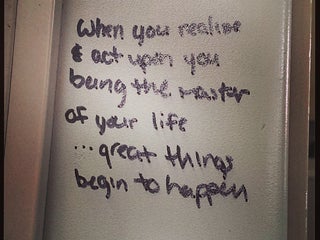 when you realize
& act upon you
being the master
of your life
...great things
begin to happen